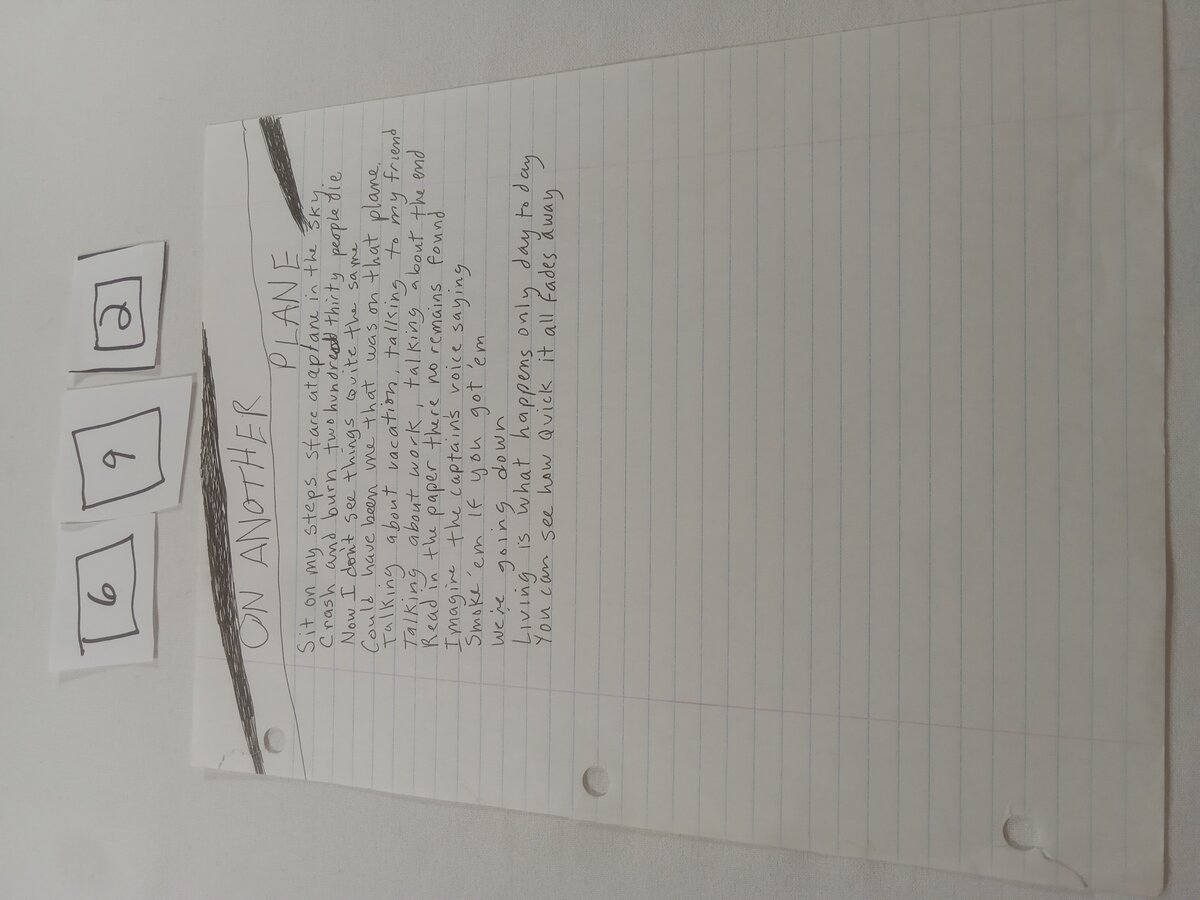 6 9 2
ON ANOTHER
PLANE
Sit on my steps stare at a plane in the sky
Crash and burn two hundred thirty people die
Now I don't see things quite the same
Could have been me that was on that plane
Talking about vacation, talking to my friend
Talking about work, talking about the end
Read in the paper there no remains found
Imagine the captain's voice saying
Smoke 'em if you got 'em
We're going down
Living is what happens only day to day
You can see how quick it all fades away